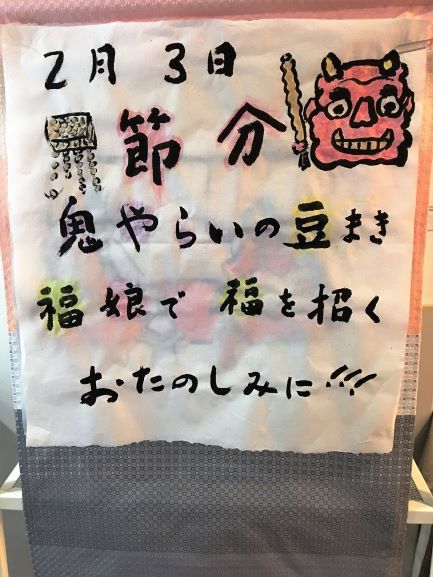 2月 3日
節分
鬼やらいの豆まき
福娘で福を招く
おたのしみに!!!